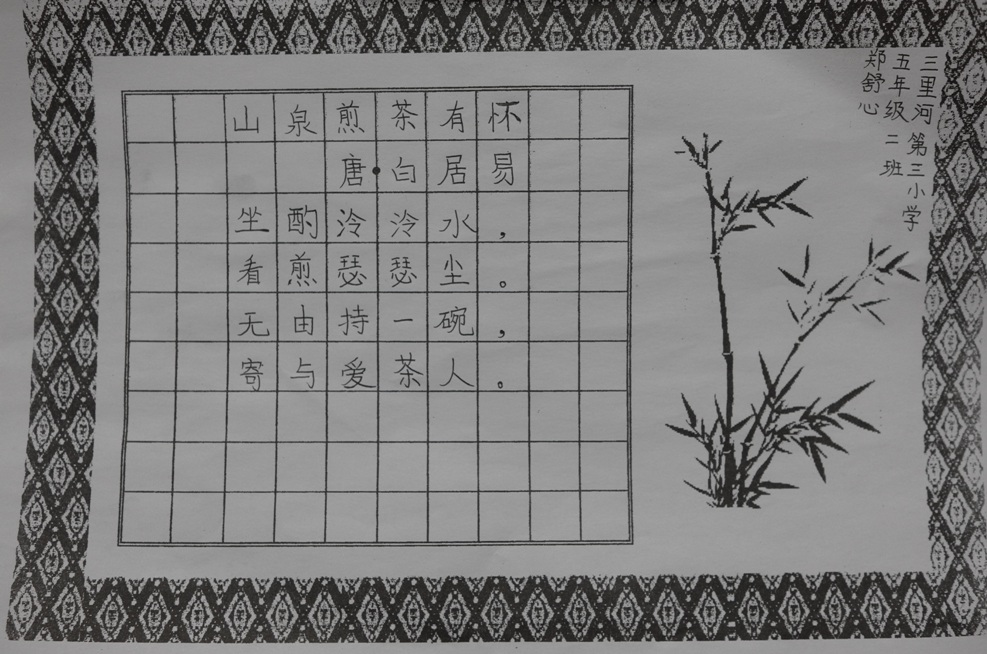 山泉煎茶有怀
唐·白居易
坐酌泠泠水，
看煎瑟瑟尘。
无由持一碗，
寄与爱茶人。
三里河第三小学
五年级二班
郑舒心